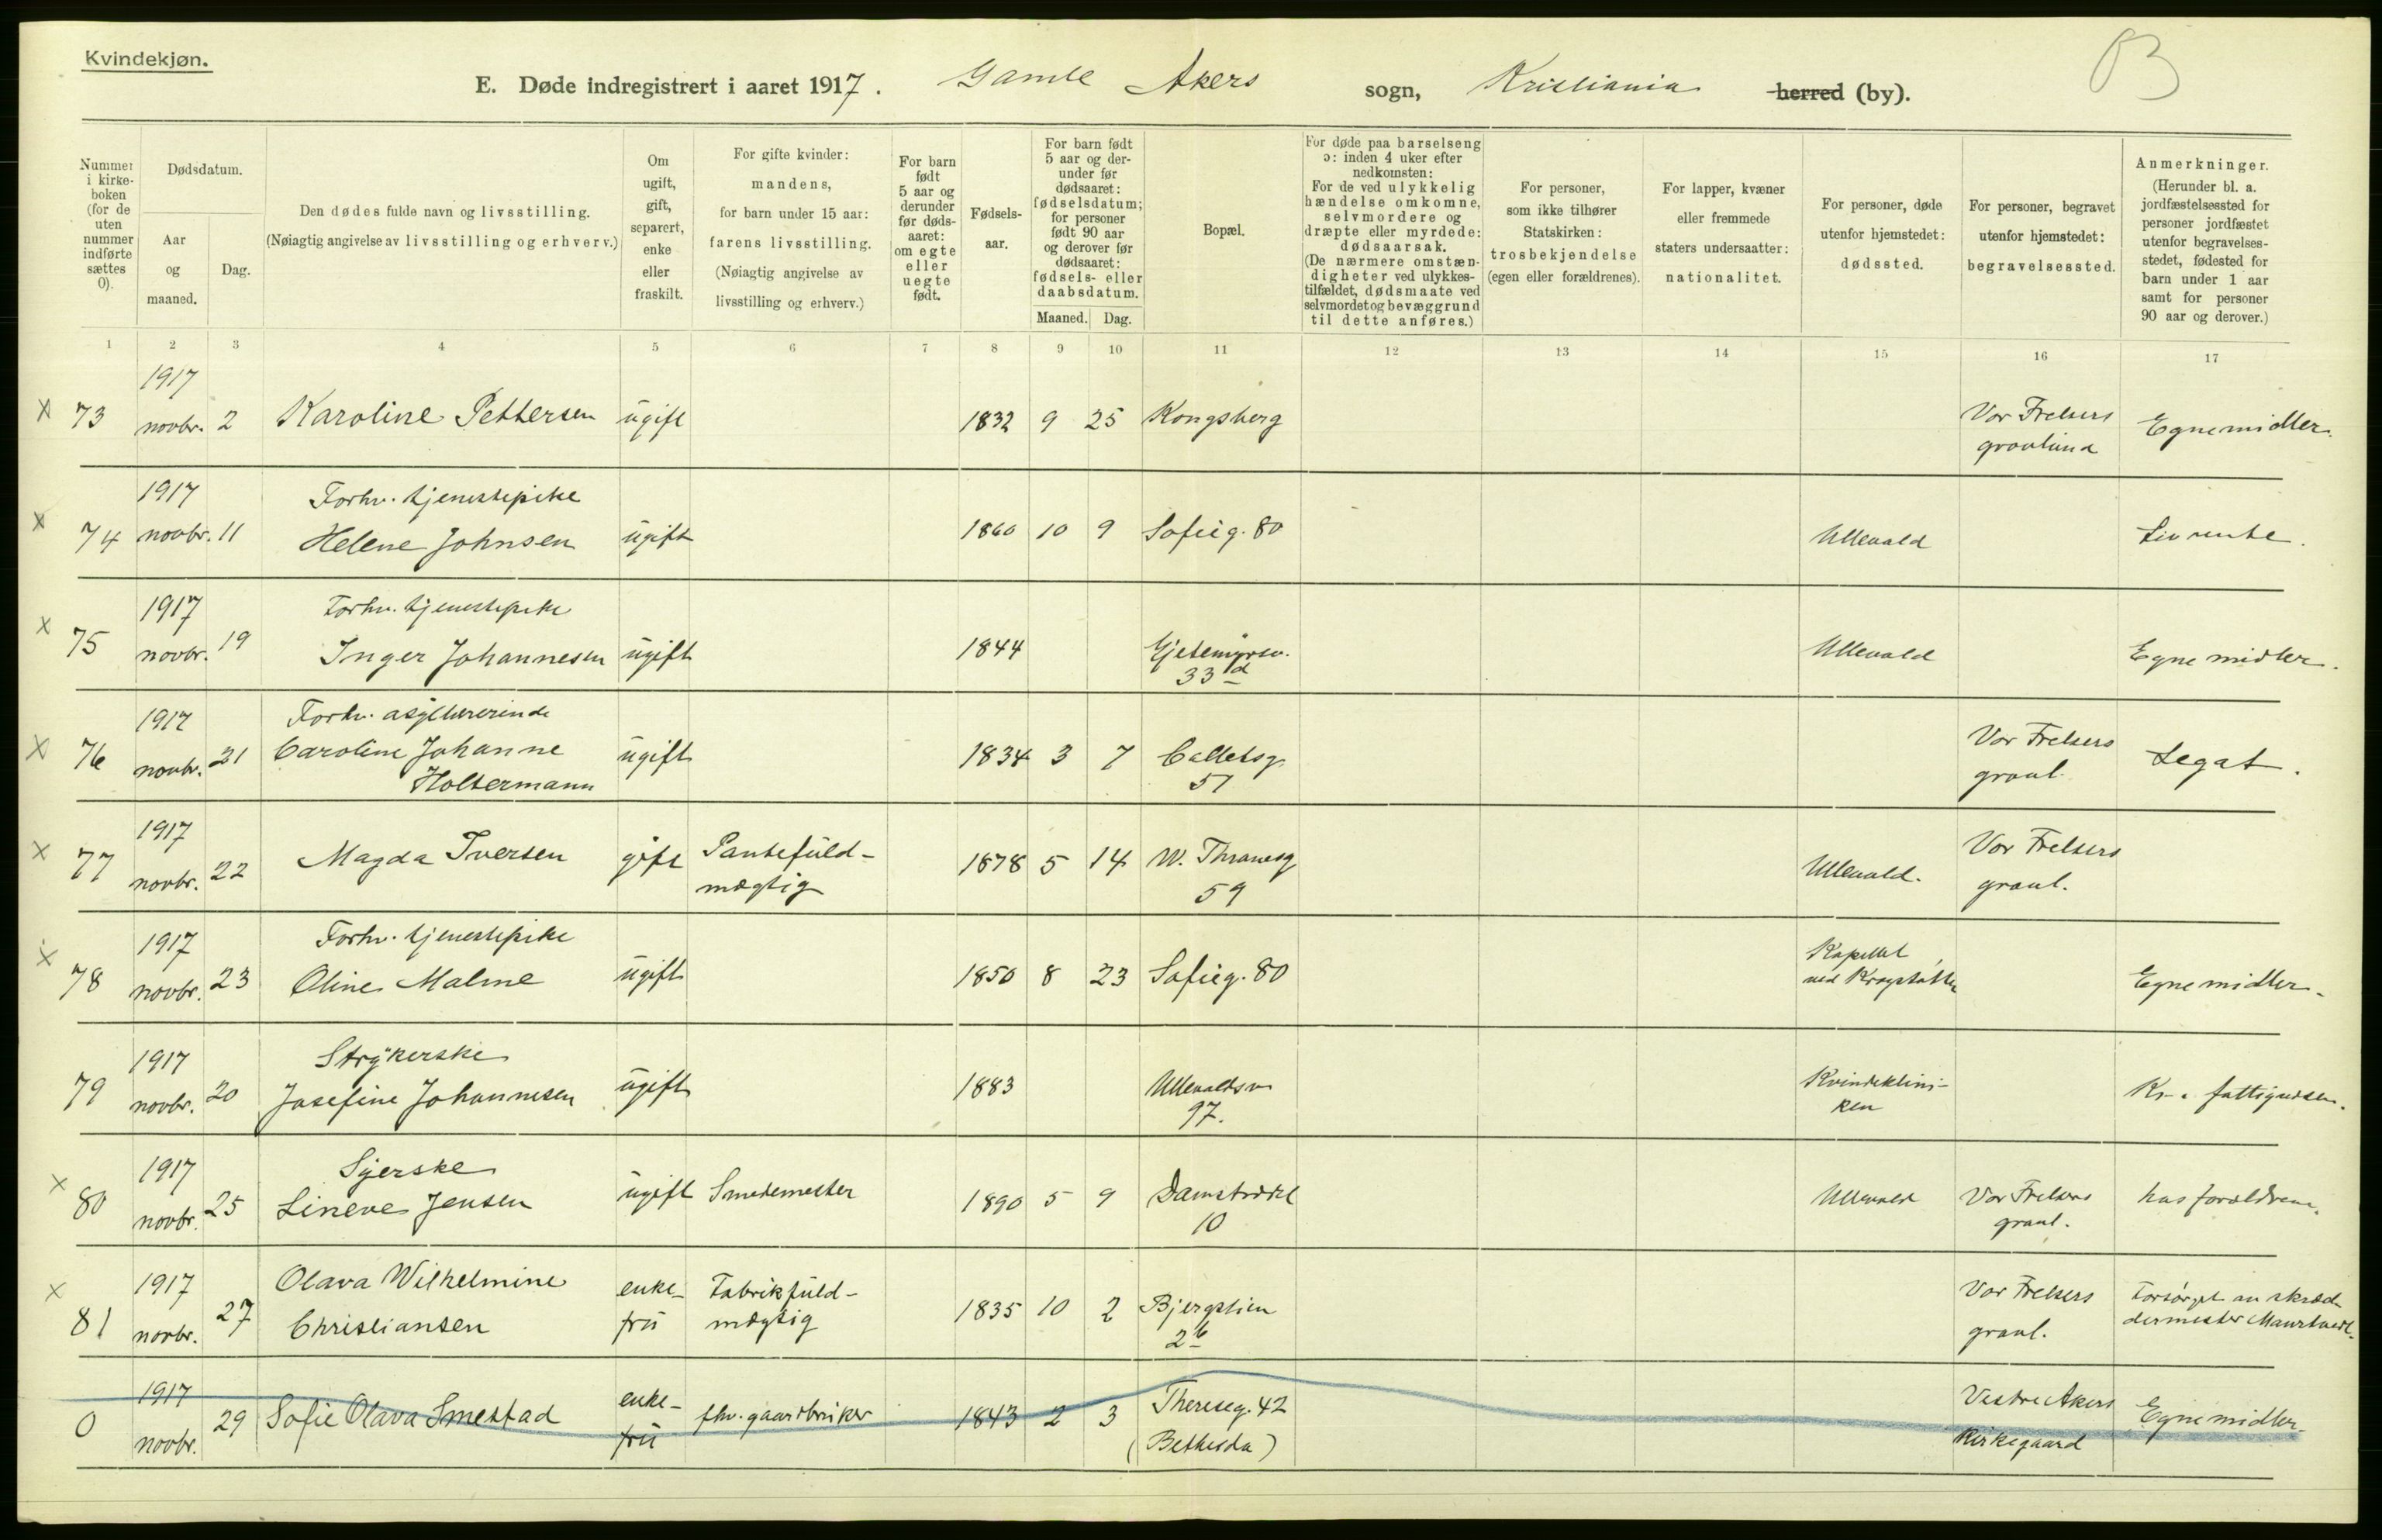 Kvindekjøn.
E. Døde indregistrert i aaret 1917. Gamle Akers sogn, Kristiania herred (by).
Nummer i kirkeboken (for de uten nummer indførte sættes 0).
Dødsdatum.
Aar og maaned.
Dag.
Den dødes fulde navn og livsstilling.
(Nøiagtig angivelse av livsstilling og erhverv.)
Om ugift, gift, separert, enke eller fraskilt.
For gifte kvinder: mandens, for barn under 15 aar: farens livsstilling. (Nøiagtig angivelse av livsstilling og erhverv.)
For barn født 5 aar og derunder før dødsaaret: om egte eller uegte født.
Fødselsaar.
For barn født 5 aar og derunder før dødsaaret: fødselsdatum; for personer født 90 aar og derover før dødsaaret: fødsels- eller daabsdatum.
Maaned. Dag.
Bopæl.
For døde paa barselseng ɔ: inden 4 uker efter nedkomsten: For de ved ulykkelig hændelse omkomne, selvmordere og dræpte eller myrdede: dødsaarsak. (De nærmere omstændigheter ved ulykkestilfældet, dødsmaate ved selvmordet og bevæggrund til dette anføres.)
For personer, som ikke tilhører Statskirken: trosbekjendelse (egen eller forældrenes).
For lapper, kvæner eller fremmede staters undersaatter: nationalitet.
For personer, døde utenfor hjemstedet: dødssted.
For personer, begravet utenfor hjemstedet: begravelsessted.
Anmerkninger. (Herunder bl. a. jordfæstelsessted for personer jordfæstet utenfor begravelsesstedet, fødested for barn under 1 aar samt for personer 90 aar og derover.)
1 2 3 4 5 6 7 8 9 10 11 12 13 14 15 16 17
x 73 1917 novbr. 2 Karoline Pettersen ugift 1832 9 25 Kongsberg Vor Frelsers gravlund Egne midler.
x 74 1917 novbr. 11 Forhv. tjenestepike Helene Johnsen ugift 1860 10 9 Sofieg. 80 Ullevald Livrente.
x 75 1917 novbr. 19 Forhv. tjenestepike Inger Johannesen ugift 1844 Gjetemyrsv. 33 d Ullevald Egne midler.
x 76 1917 novbr. 21 Forhv. asyllærerinde Caroline Johanne Holtermann ugift 1834 3 7 Calletsg. 51 Vor Frelsers gravl. Legat.
x 77 1917 novbr. 22 Magda Iversen gift Pantefuldmægtig 1878 5 14 W. Thranesg 59 Ullevald. Vor Frelsers gravl.
x 78 1917 novbr. 23 Forhv. tjenestepike Oline Malme ugift 1850 8 23 Sofieg. 80 Kapellet ved Krogstøtten Egne midler.
79 1917 novbr. 20 Strykerske Josefine Johannesen ugift 1883 Ullevaldsv. 97. Kvindekliniken Kr.a fattigvæsen.
x 80 1917 novbr. 25 Syerske Lineve Jensen ugift Smedemester 1890 5 9 Damstrædet 10 Ullevald Vor Frelsers gravl. hos forældrene.
x 81 1917 novbr. 27 Olava Wilhelmine Christiansen enkefru Fabrikfuldmægtig 1835 10 2 Bjergstien 2 b Vor Frelsers gravl. Forsørget av skræddermester
0 1917 novbr. 29 Sofie Olava Smestad enkefru fhv. gaardbruker 1843 2 3 Thereseg. 42 (Bethesda) Vestre Akers Kirkegaard Egne midler.